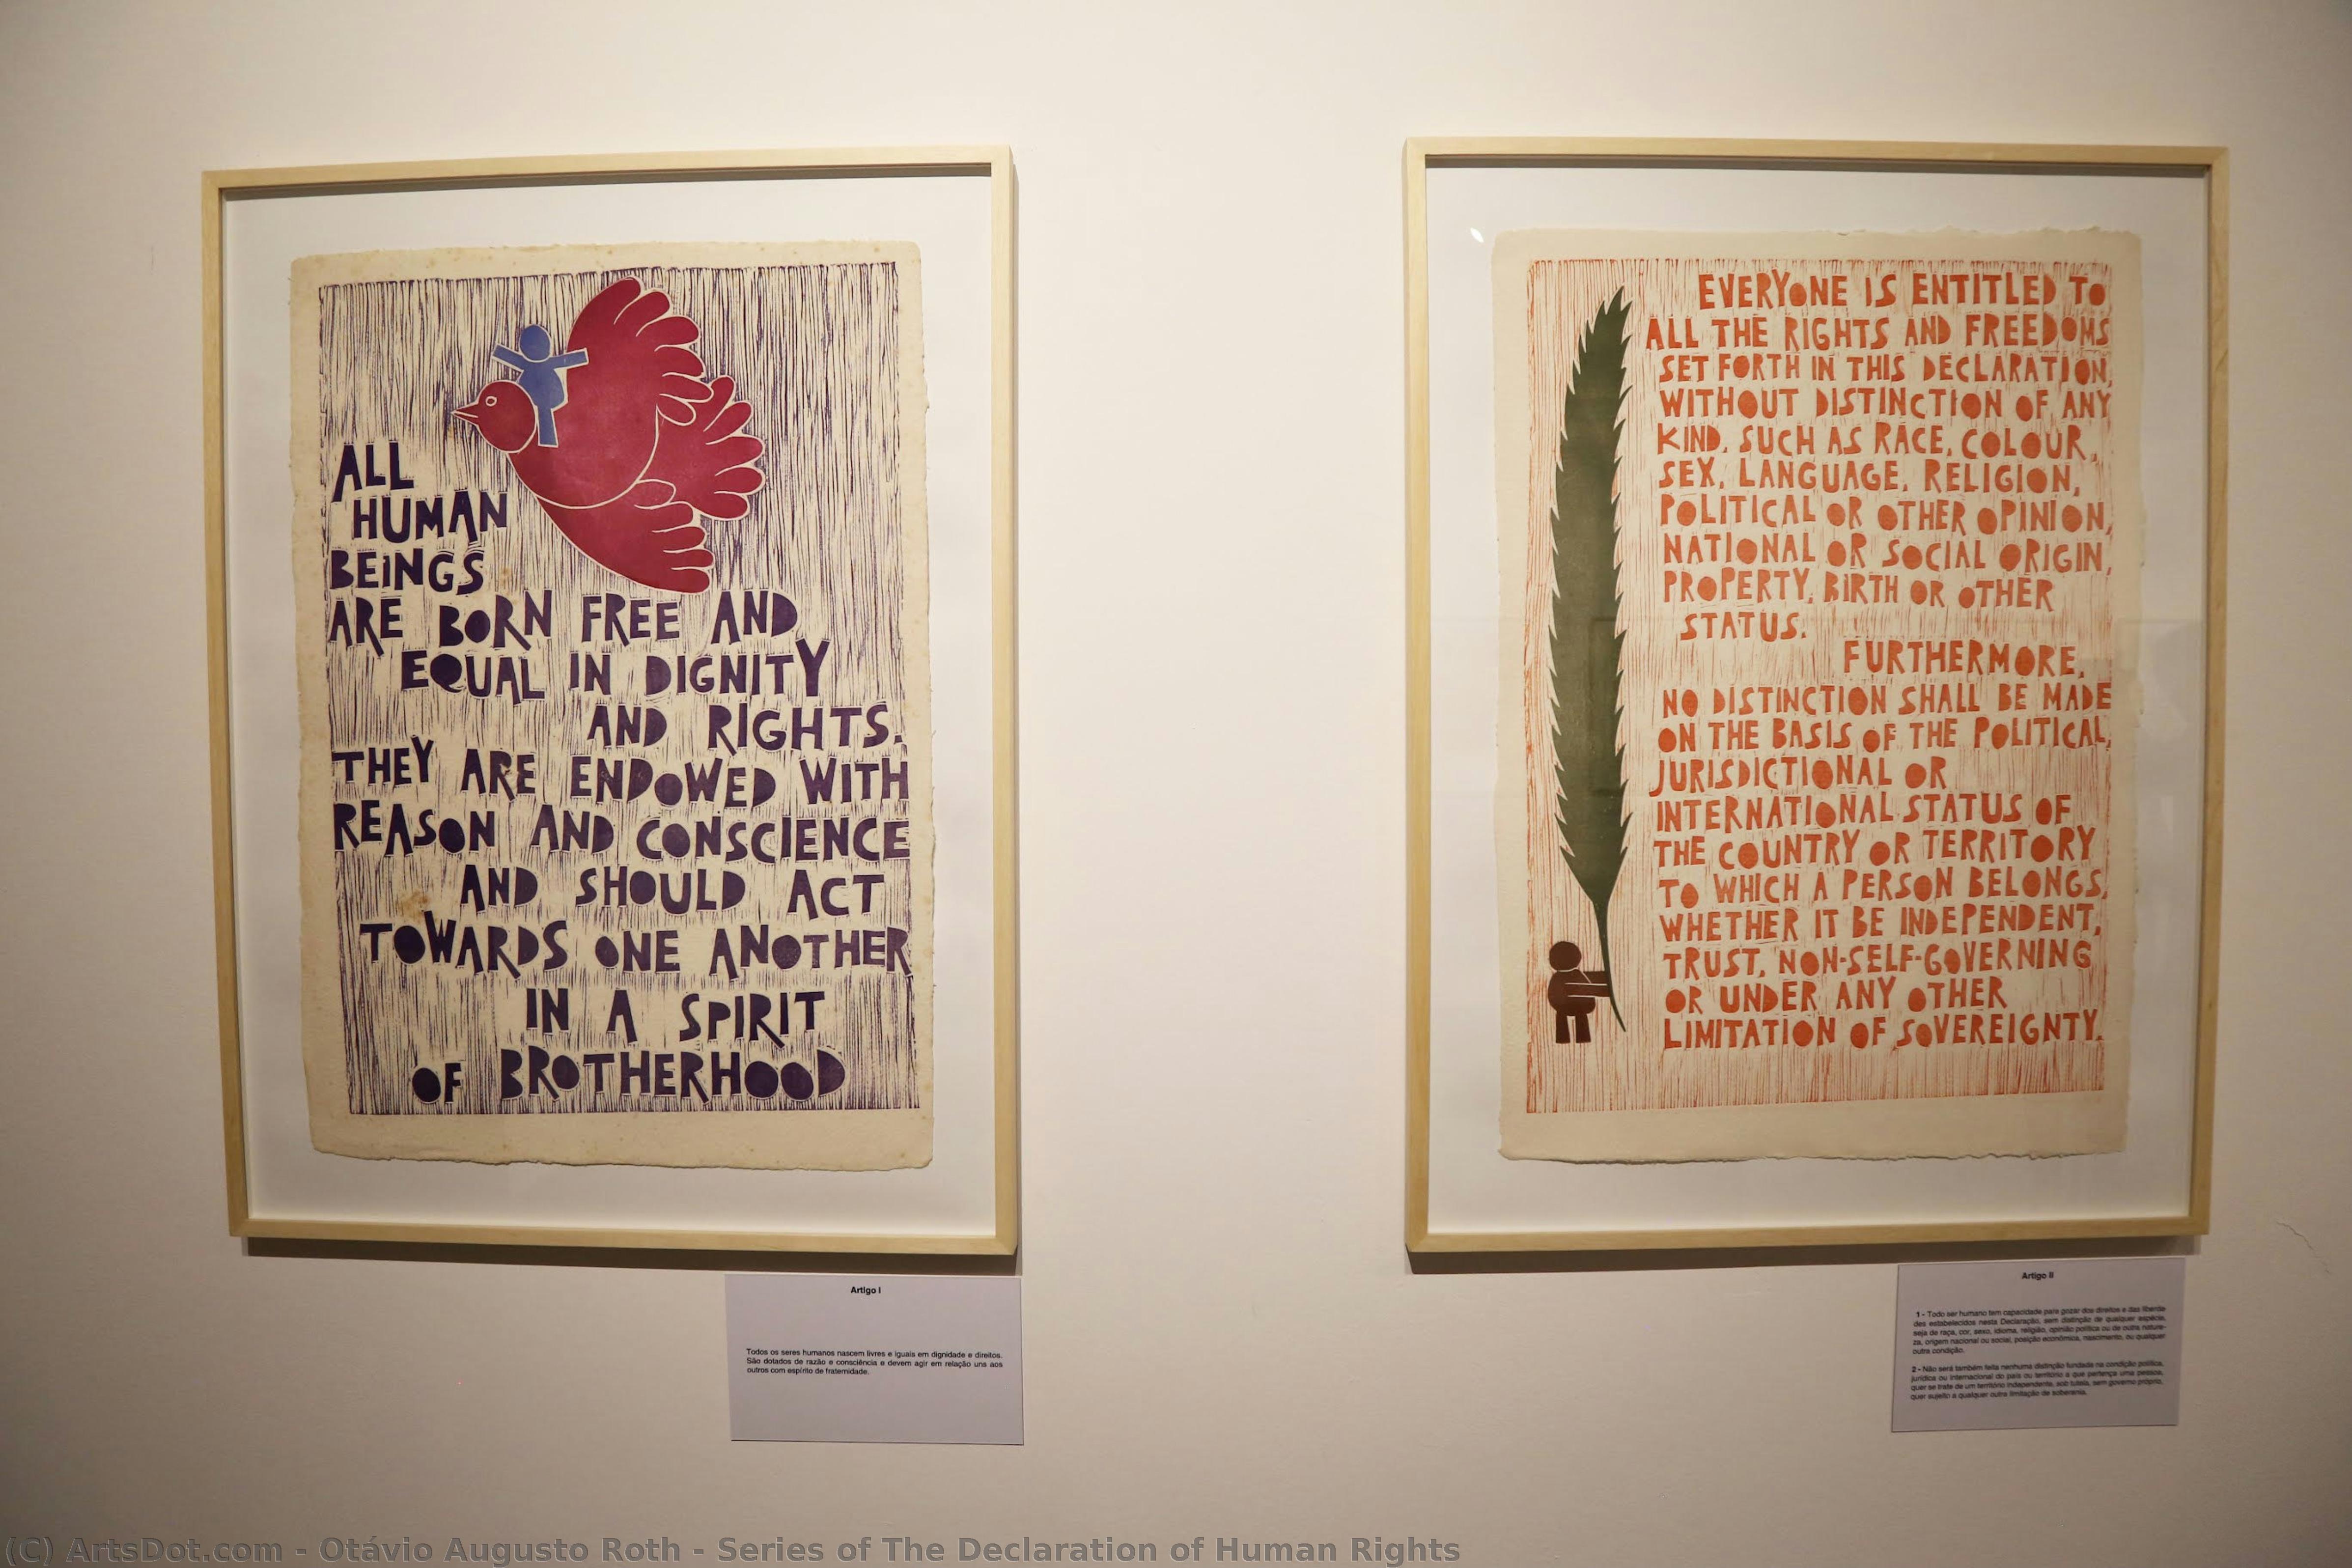 ALL
HUMAN
BEINGS
ARE BORN FREE AND
EQUAL IN DIGNITY
AND RIGHTS.
THEY ARE ENDOWED WITH
REASON AND CONSCIENCE
AND SHOULD ACT
TOWARDS ONE ANOTHER
IN A SPIRIT
OF BROTHERHOOD
Artigo I
Todos os seres humanos nascem livres e iguais em dignidade e direitos.
São dotados de razão e consciência e devem agir em relação uns aos
outros com espírito de fraternidade.
EVERYONE IS ENTITLED TO
ALL THE RIGHTS AND FREEDOMS
SET FORTH IN THIS DECLARATION,
WITHOUT DISTINCTION OF ANY
KIND, SUCH AS RACE, COLOUR,
SEX, LANGUAGE, RELIGION,
POLITICAL OR OTHER OPINION,
NATIONAL OR SOCIAL ORIGIN,
PROPERTY, BIRTH OR OTHER
STATUS.
FURTHERMORE,
NO DISTINCTION SHALL BE MADE
ON THE BASIS OF THE POLITICAL,
JURISDICTIONAL OR
INTERNATIONAL STATUS OF
THE COUNTRY OR TERRITORY
TO WHICH A PERSON BELONGS,
WHETHER IT BE INDEPENDENT,
TRUST, NON-SELF-GOVERNING
OR UNDER ANY OTHER
LIMITATION OF SOVEREIGNTY.
Artigo II
1 - Todo ser humano tem capacidade para gozar dos direitos e das liberda
des estabelecidos nesta Declaração, sem distinção de qualquer espécie,
seja de raça, cor, sexo, idioma, religião, opinião política ou de outra nature-
za, origem nacional ou social, posição econômica, nascimento, ou qualquer
outra condição.
2 - Não será também feita nenhuma distinção fundada na condição política,
jurídica ou internacional do país ou território a que pertença uma pessoa,
quer se trate de um território independente, sob tutela, sem governo próprio,
quer sujeito a qualquer outra limitação de soberania.
(C) ArtsDot.com - Otávio Augusto Roth - Series of The Declaration of Human Rights